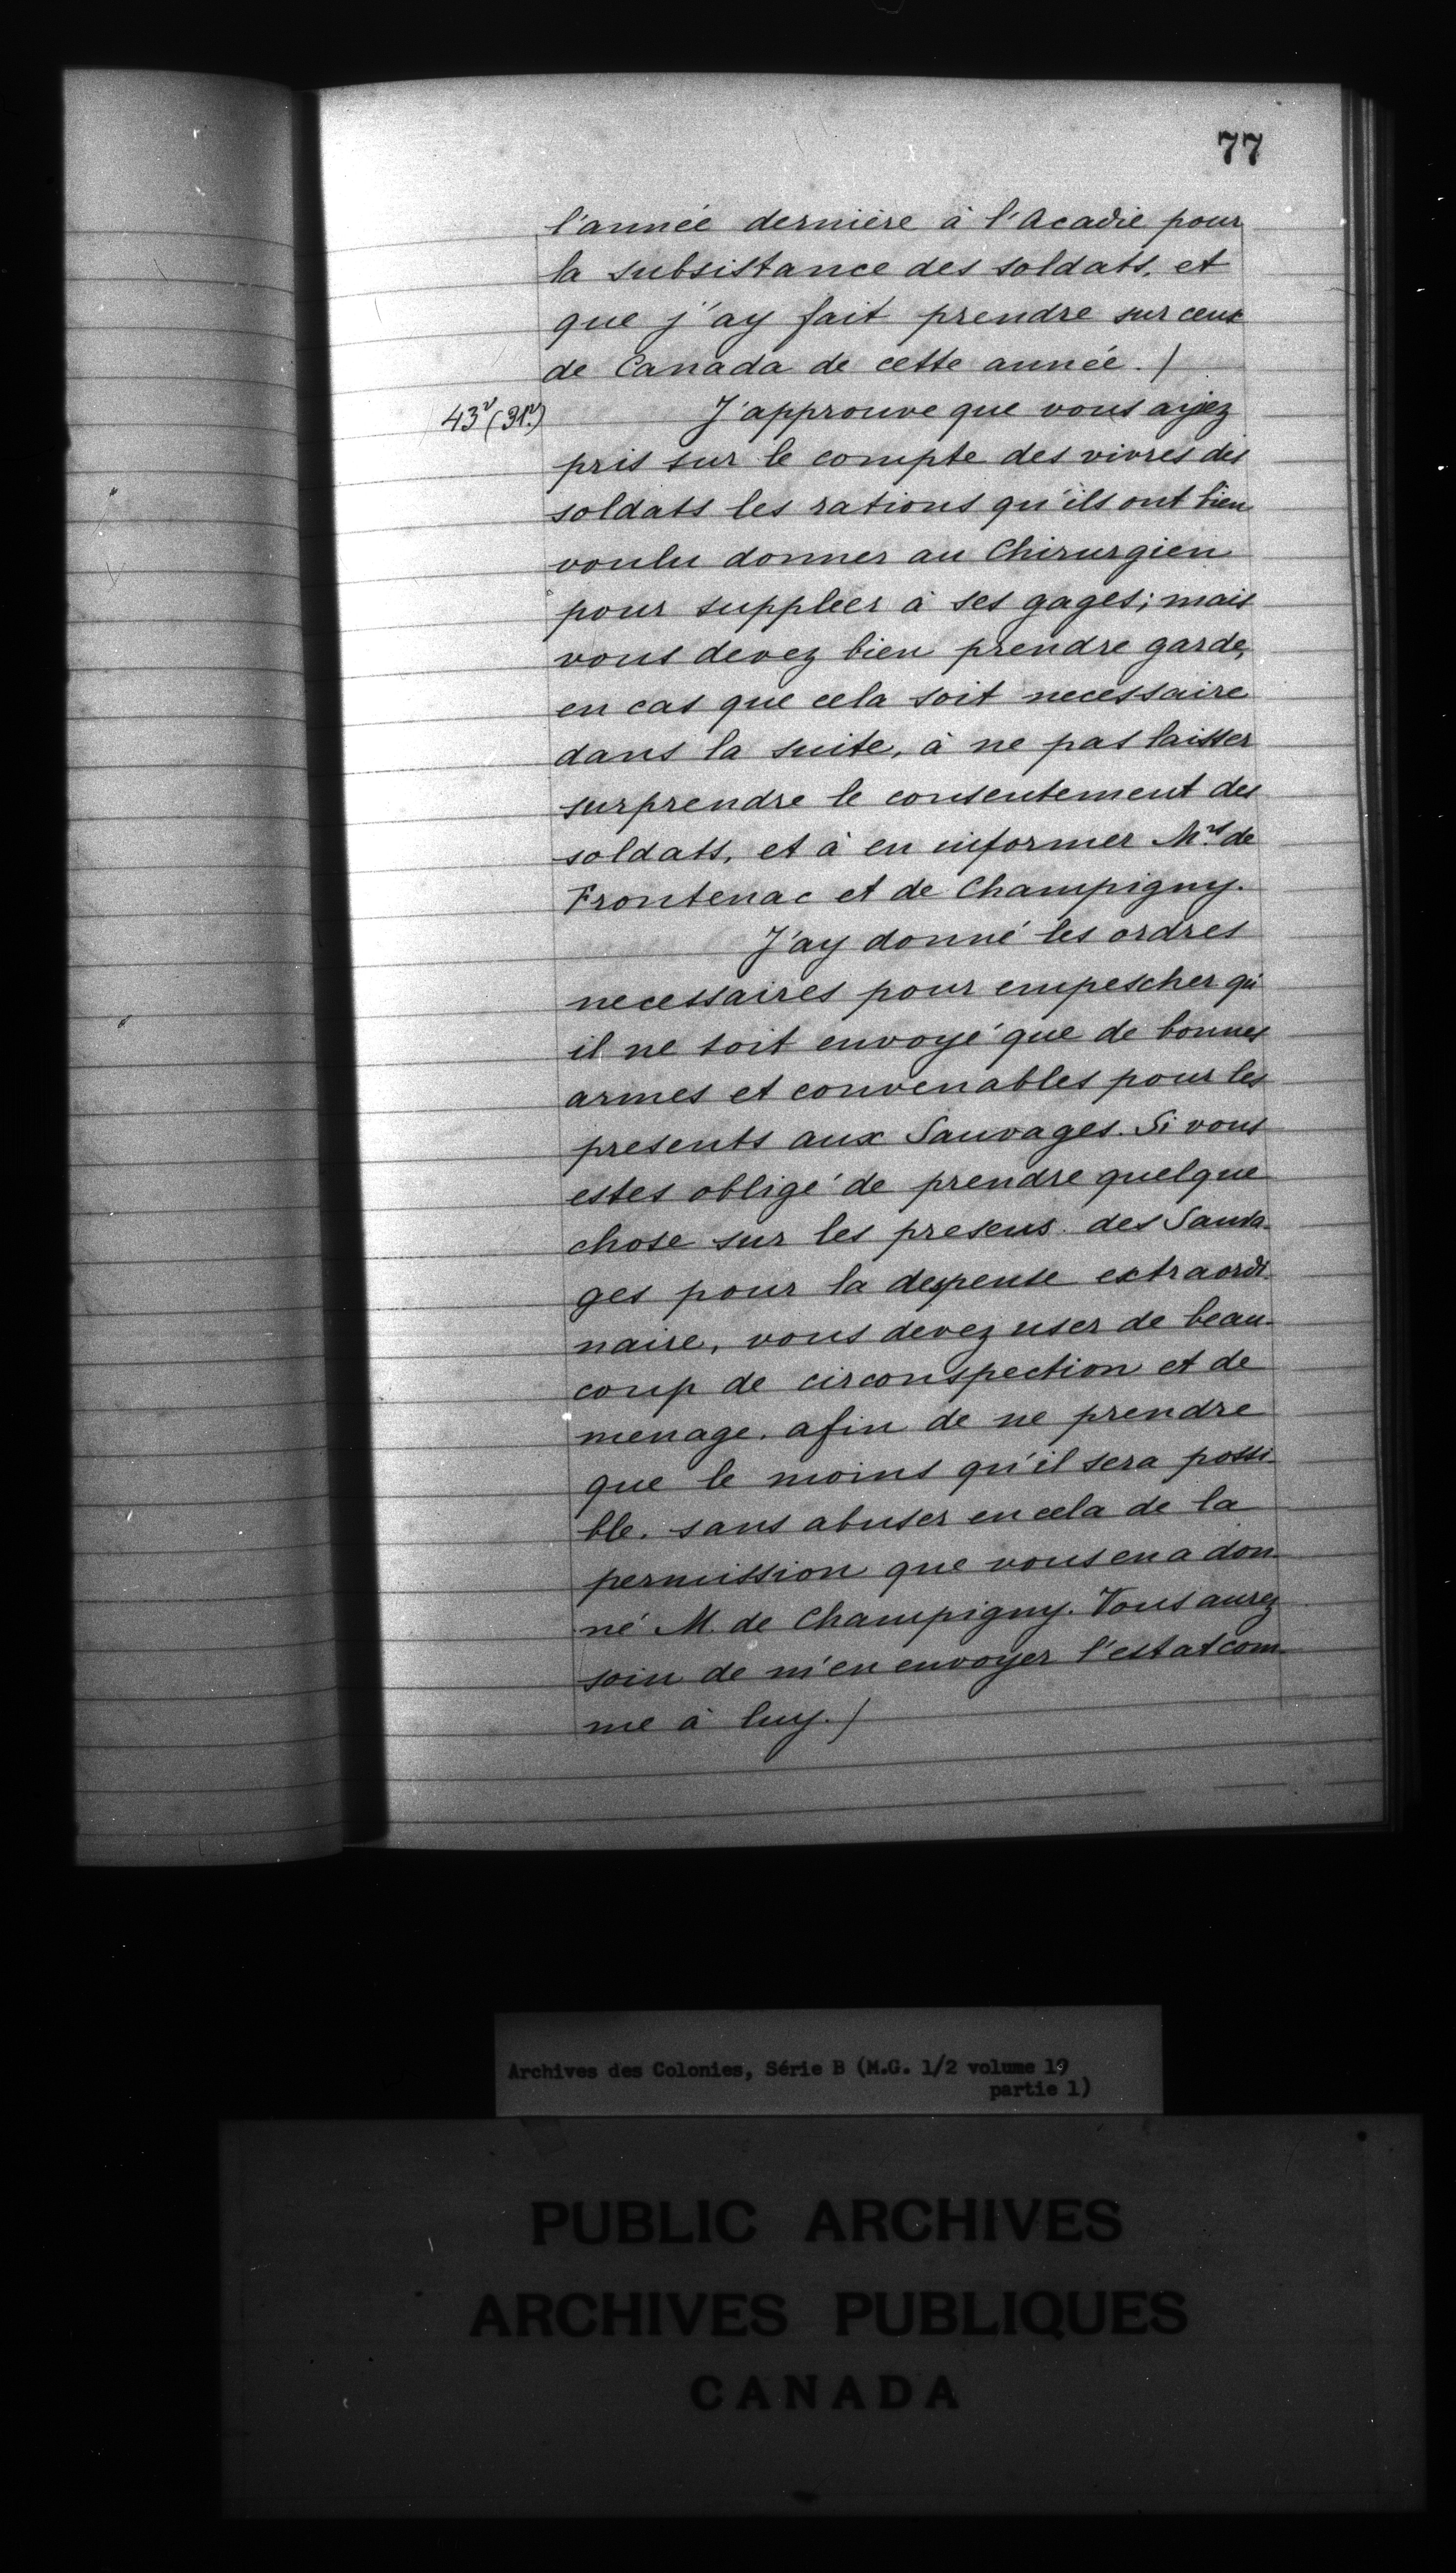 77
l'année dernière à l'Acadie pour
la subsistance des soldats, et
que j'ay fait prendre sur ceux
de Canada de cette année. /
43v (31v) J'approuve que vous ayiez
pris sur le compte des vivres des
soldats les rations qu'ils ont bien
voulu donner au Chirurgien
pour suppleer à ses gages; mais
vous devez bien prendre garde,
en cas que cela soit necessaire
dans la suite, à ne pas laisser
surprendre le consentement des
soldats, et à en informer Mrs de
Frontenac et de Champigny.
J'ay donné les ordres
necessaires pour empescher qu'
il ne soit envoyé que de bonnes
armes et convenables pour les
presents aux Sauvages. Si vous
estes obligé de prendre quelque
chose sur les presens des Sauva-
ges pour la despense extraordi-
naire, vous devez user de beau-
coup de circonspection et de
menage, afin de ne prendre
que le moins qu'il sera possi-
ble, sans abuser en cela de la
permission que vous en a don-
né M. de Champigny. Vous aurez
soin de m'en envoyer l'estat com-
me à luy. /
Archives des Colonies, Série B (M.G. 1/2 volume 19
partie 1)
PUBLIC ARCHIVES
ARCHIVES PUBLIQUES
CANADA